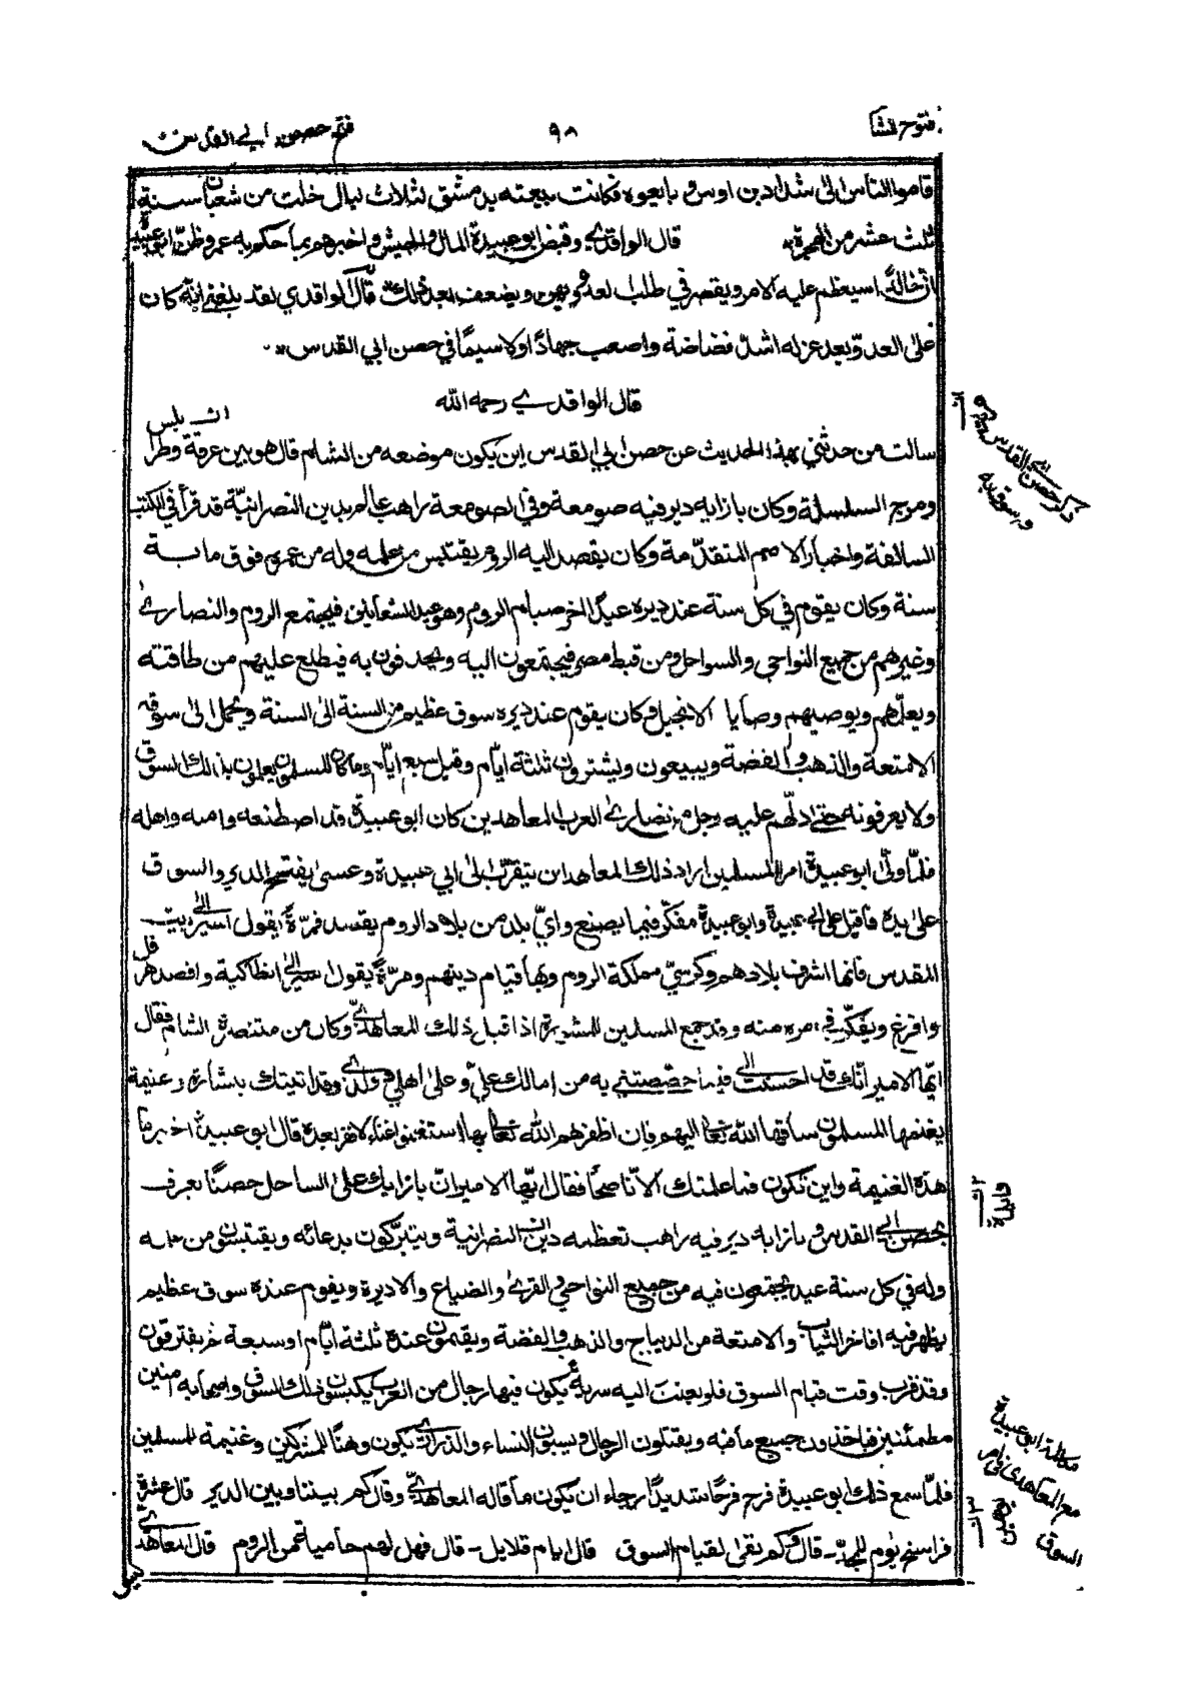 فتوح الشام
٩٨
فتح حصن ابي القدس
قاموا الناس الى شداد بن اوس و بايعوه فكانت بيعته بدمشق لثلاث ليال خلت من شعبان سنة
ثلث عشر من الهجرة قال الواقدي وقبض ابو عبيدة المال والجيش واخبرهم بما حكم به عمر وظن ابو عبيدة
ان خالدا سيعظم عليه الامر ويقصر في طلب العدو ويهون ويضعف بعد ذلك قال الواقدي لقد بلغني انه كان
على العدو بعد عزله اشد فضاضة واصعب جهادا ولا سيما في حصن ابي القدس
قال الواقدي رحمه الله
سالت من حدثني بهذا الحديث عن حصن ابي القدس اين يكون موضعه من الشام قال هو بين عرقة وطرابلس
ومرج السلسلة وكان بازايه دير فيه صومعة وفي الصومعة راهب عالم بدين النصرانية قد قرأ في الكتب
السالفة واخبار الامم المتقدمة وكان يقصد اليه الروم يقتبس من علمه وله من عمره فوق ماية
سنة وكان يقوم في كل سنة عند ديره عيد اخر صيام الروم وهو عيد الشعانين فيجتمع الروم والنصارى
وغيرهم من جميع النواحي والسواحل ومن قبط مصر فيجتمعون اليه ويحدقون به فيطلع عليهم من طاقته
ويعلمهم ويوصيهم وصايا الانجيل وكان يقوم عند ديره سوق عظيم من السنة الى السنة ويحمل الى سوقه
الامتعة والذهب والفضة ويبيعون ويشترون ثلثة ايام وقيل سبع ايام وما كان المسلمون يعلمون بذالك السوق
ولا يعرفونه حتى دلهم عليه رجل من نصارى العرب المعاهدين كان ابو عبيدة قد اصطنعه وامنه واهله
فلما ولى ابو عبيدة امر المسلمين اراد ذلك المعاهد ان يتقرب الى ابي عبيدة وعسى يفتح الدير والسوق
على يده فاقبل على ابي عبيدة وابو عبيدة مفكر فيما يصنع واي بلد من بلاد الروم يقصد فمرة يقول اسير الى بيت
المقدس فانها اشرف بلادهم وكرسي مملكة الروم وبها قيام دينهم ومرة يقول اسير الى انطاكية واقصد هرقل
وافرغ ويفكر في امره منه وقد جمع المسلمين للمشورة اذا قبل ذلك المعاهدي وكان من متنصرة الشام فقال
ايها الامير انك قد احسنت الي فيما خصصتني به من امالك علي وعلى اهلي وولدي وقد اتيتك ببشارة وغنيمة
يغنمها المسلمون ساقها الله تعالى اليهم فان اظفرهم الله تعالى بها استغنوا غناء لا فقر بعده قال ابو عبيدة اخبرنا
هذه الغنيمة واين تكون فما علمتك الا ناصحا فقال ايها الامير ان بازايك على الساحل حصنا يعرف
بحصن ابي القدس و بازايه دير فيه راهب تعظمه دين النصرانية ويتبركون بدعائه ويقتبسون من علمه
وله في كل سنة عيد يجتمعون فيه من جميع النواحي والقرى والضياع والاديرة ويقوم عنده سوق عظيم
يظهر فيه افاخر الثياب والامتعة من الديباج والذهب والفضة ويقيمون عنده ثلثة ايام او سبعة ثم يفترقون
وقد قرب وقت قيام السوق فلو بعثت اليه سرية يكون فيها رجال من العرب يكبسون ذلك السوق واصحابه امنين
مطمئنين فياخذون جميع ما فيه ويقتلون الرجال ويسبون النساء والذراري يكون وهنا للمشركين وغنيمة للمسلمين
فلما سمع ذلك ابو عبيدة فرح فرحا شديدا رجاء ان يكون ما قاله المعاهدي وقال كم بيننا وبين الدير قال عشرة
فراسخ يوم للمجد قال وكم بقى لقيام السوق قال ايام قلايل قال فهل لهم حامية من الروم قال المعاهدي
ليس
ذكر حصن ابي القدس وسوقه
مكالمة ابو عبيدة
مع المعاهدي في امر
السوق